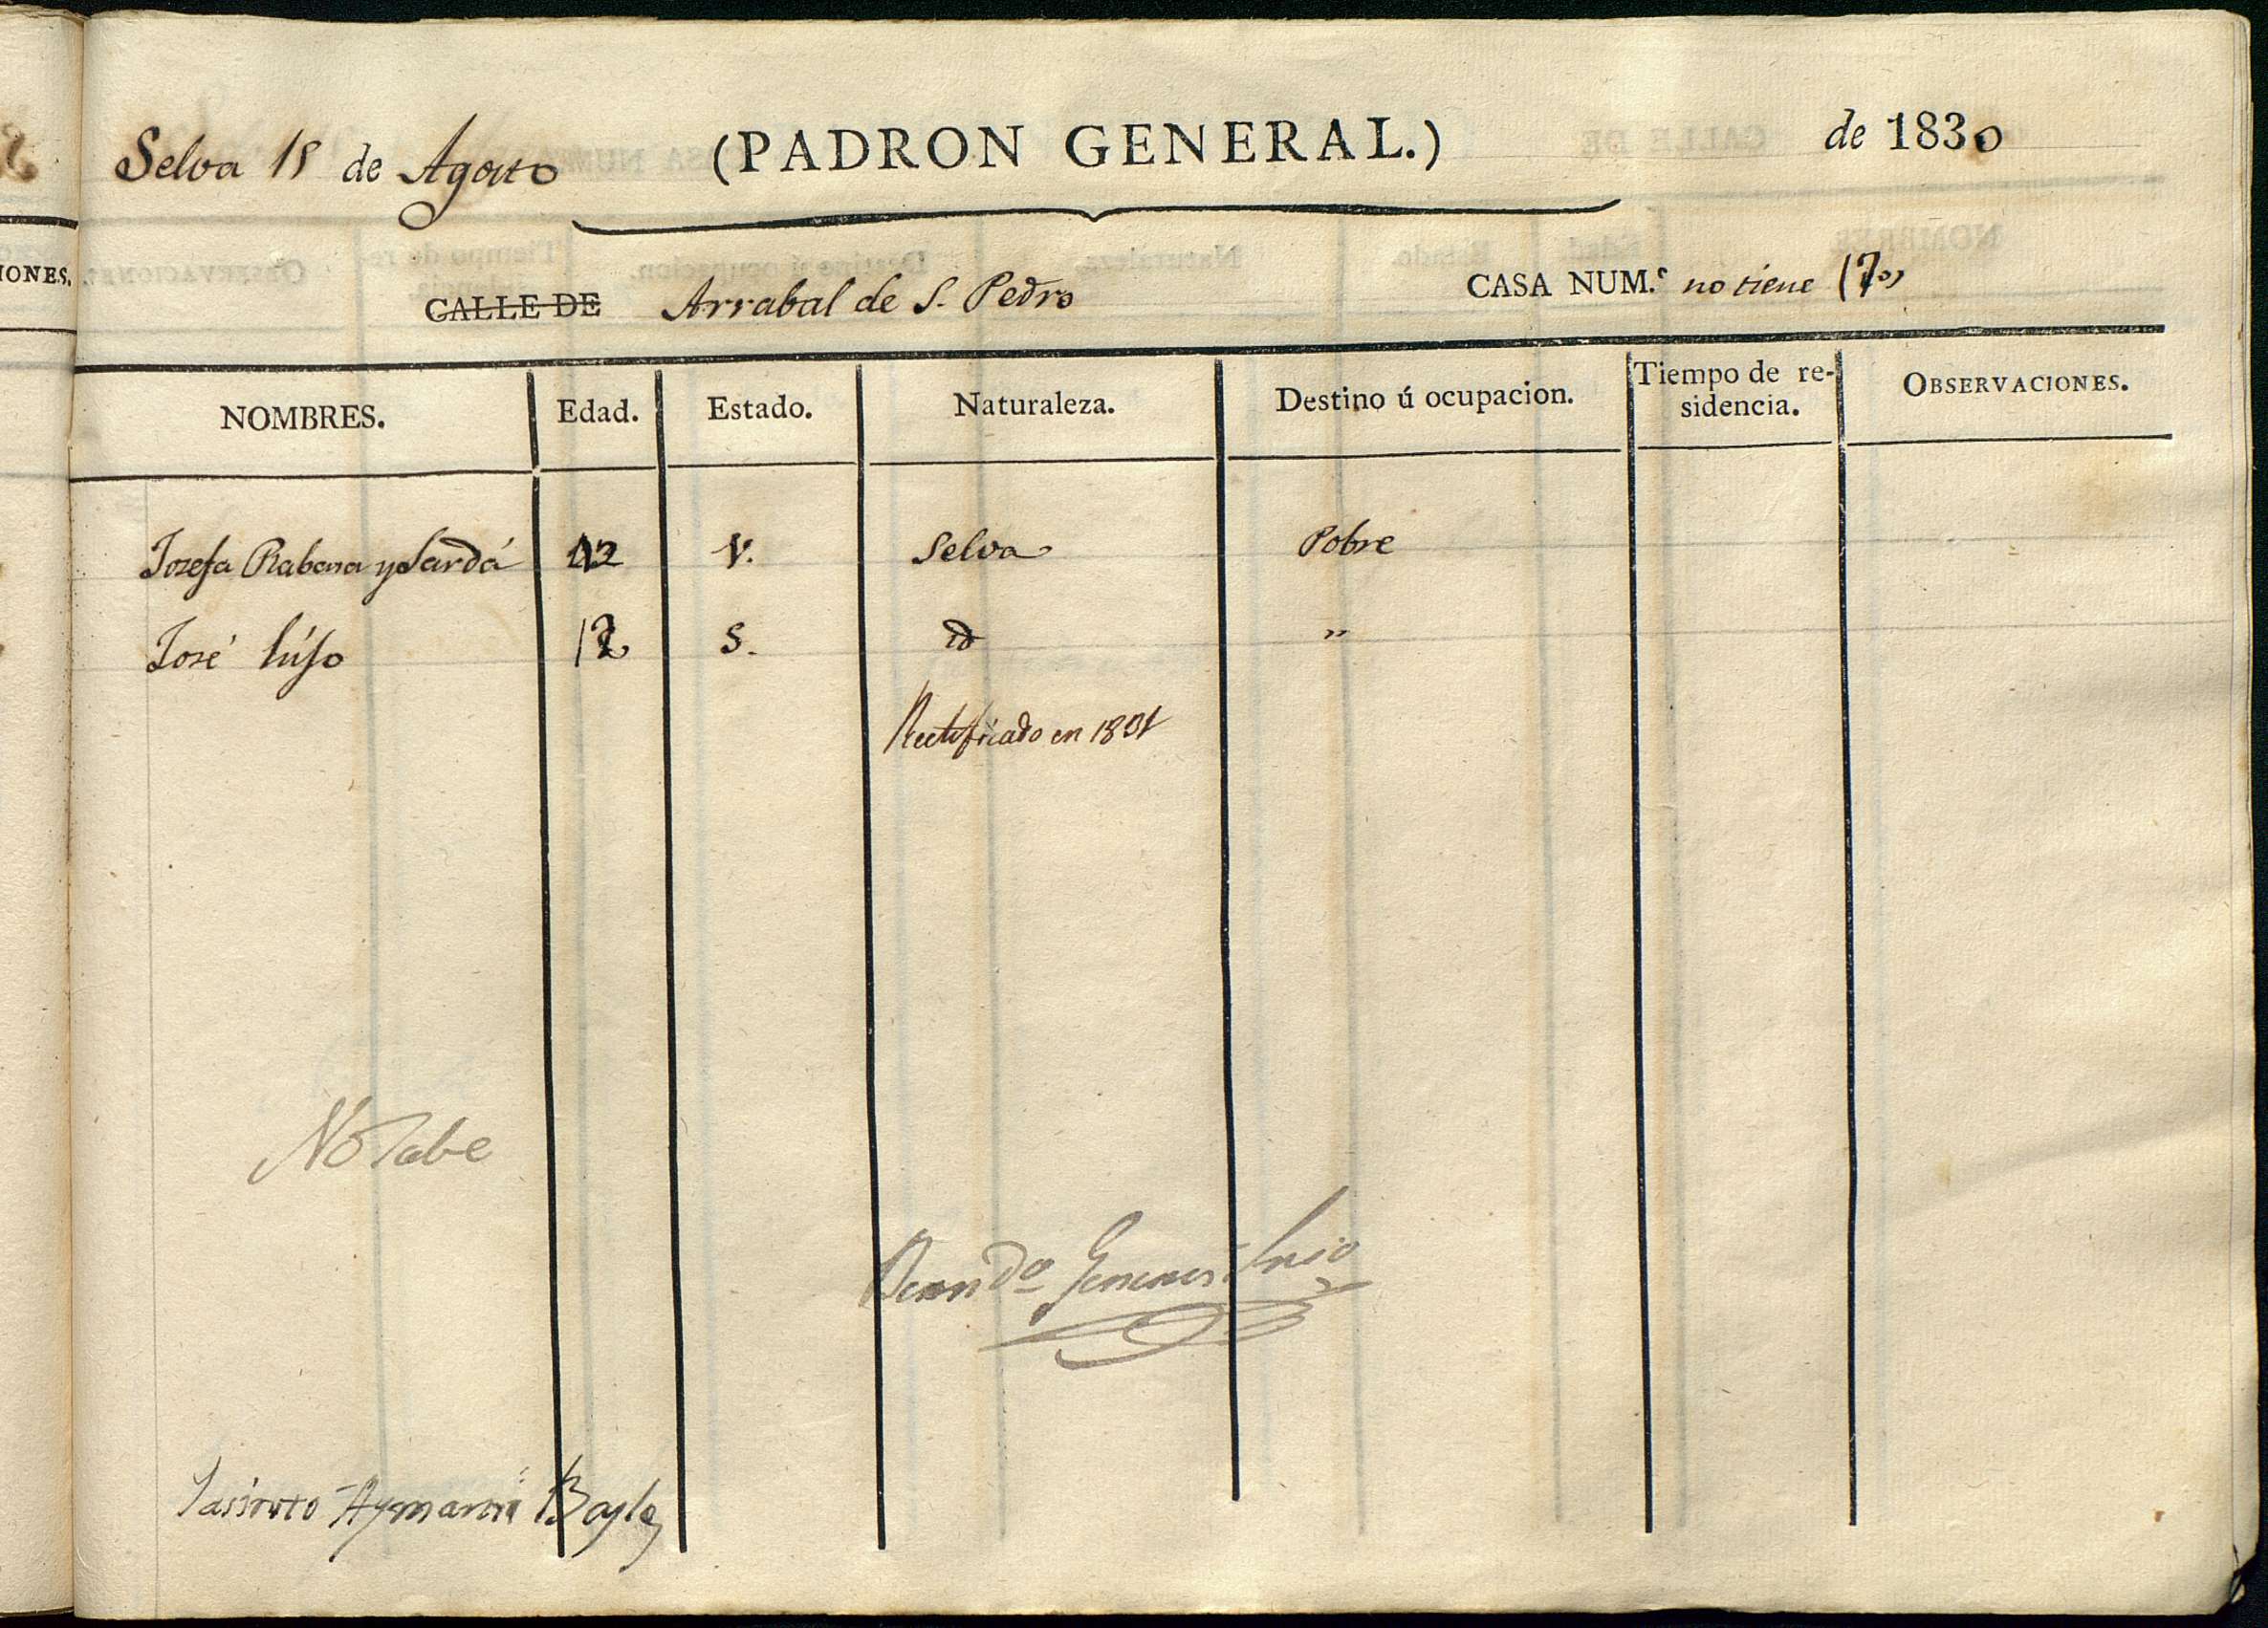 Selva 15 de Agosto (PADRON GENERAL.) de 1830
CALLE DE Arrabal de S. Pedro CASA NUM.º no tiene (7º)
NOMBRES. Edad. Estado. Naturaleza. Destino ú ocupacion. Tiempo de re-
sidencia. OBSERVACIONES.
Josefa Rabasa y Sardá 42 V. Selva Pobre
José hijo 12 S. id "
Rectificado en 1831
No Sabe
Srio
Jasinto Aymamí Bayle
IONES.